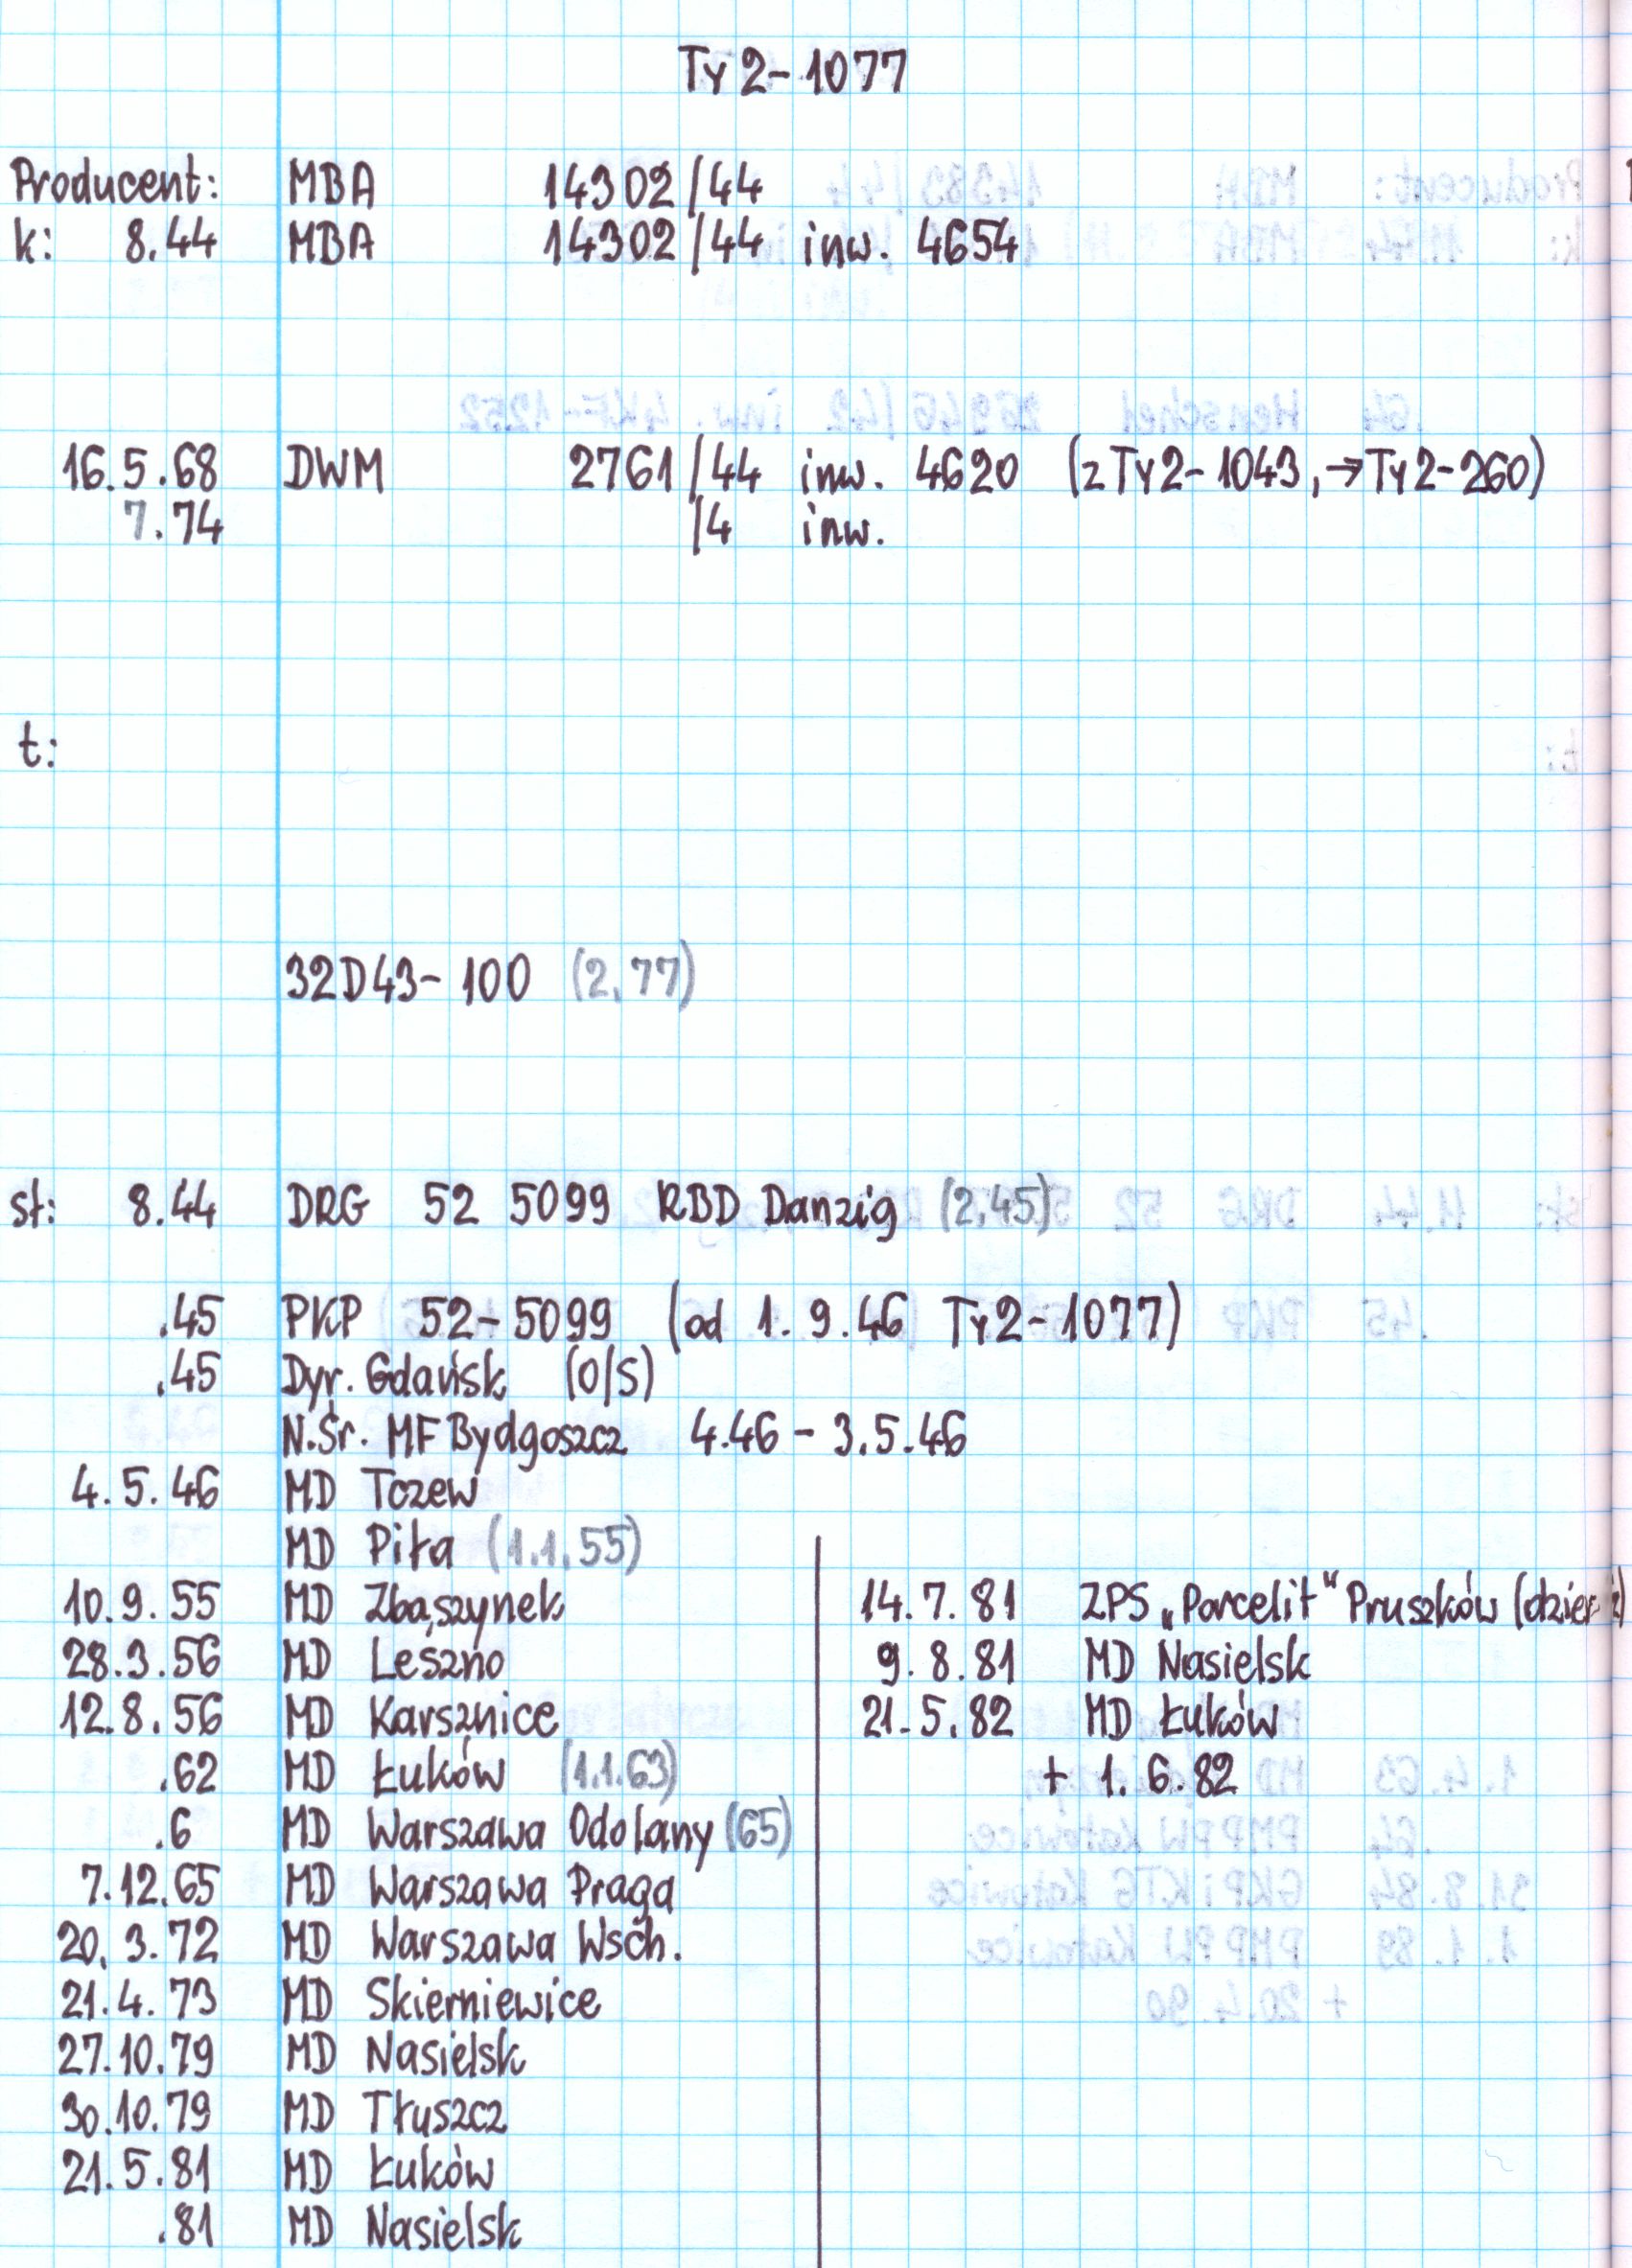 Ty2-1077
Producent: MBA 14302/44
k: 8.44 MBA 14302/44 inw. 4654
16.5.68 DWM 2761/44 inw. 4620 (z Ty2-1043, →Ty2-260)
7.74 /4 inw.
t:
32D43-100 (2.77)
st: 8.44 DRG 52 5099 RBD Danzig (2.45)
.45 PKP 52-5099 (od 1.9.46 Ty2-1077)
.45 Dyr. Gdańsk (O/S)
N.Śr. MF Bydgoszcz 4.46 - 3.5.46
4.5.46 MD Tczew
MD Piła (1.1.55)
10.9.55 MD Zbąszynek
28.3.56 MD Leszno
12.8.56 MD Karsznice
.62 MD Łuków (1.1.63)
.6 MD Warszawa Odolany (65)
7.12.65 MD Warszawa Praga
20.3.72 MD Warszawa Wsch.
21.4.73 MD Skierniewice
27.10.79 MD Nasielsk
30.10.79 MD Tłuszcz
21.5.81 MD Łuków
.81 MD Nasielsk
14.7.81 ZPS „Porcelit" Pruszków
9.8.81 MD Nasielsk
21.5.82 MD Łuków
+ 1.6.82